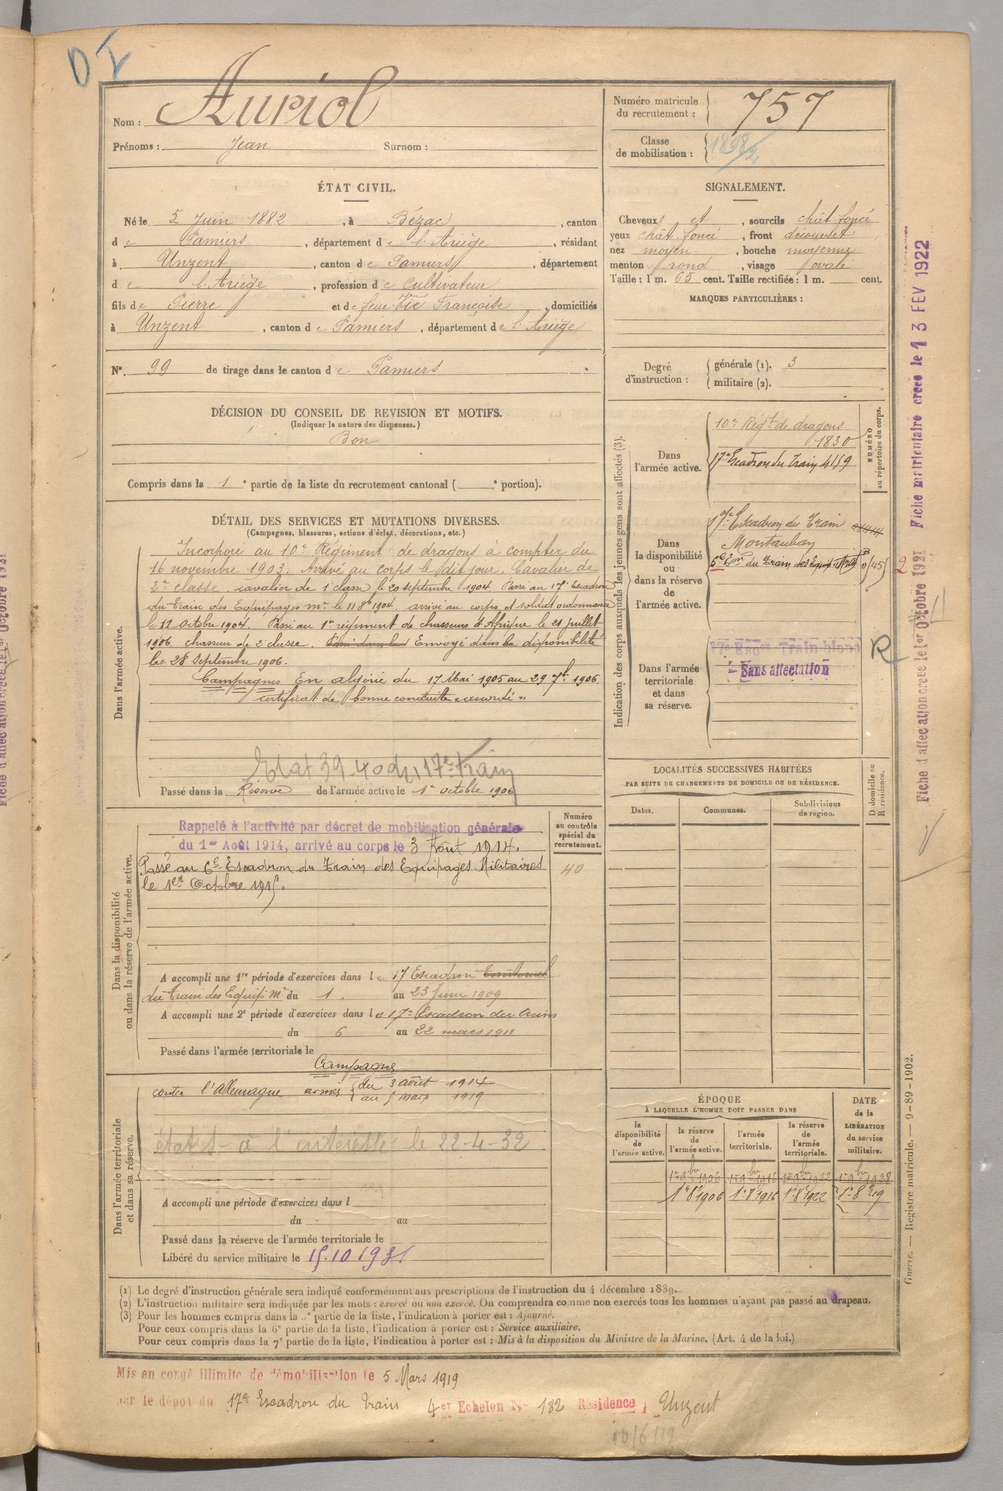 D I
Nom : Auriol
Prénoms : Jean Surnom :
Numéro matricule du recrutement : 757
Classe de mobilisation : 1898
ÉTAT CIVIL.
Né le 5 Juin 1882, à Bézac, canton
de Pamiers, département de l'Ariège, résidant
à Unzent, canton de Pamiers, département
de l'Ariège, profession de Cultivateur
fils de Pierre et de feue Vic Françoise, domiciliés
à Unzent, canton de Pamiers, département de l'Ariège
N° 99 de tirage dans le canton de Pamiers
SIGNALEMENT.
Cheveux et, sourcils chât foncé
yeux chât foncé, front découvert,
nez moyen, bouche moyenne
menton rond, visage ovale
Taille : 1 m. 65 cent. Taille rectifiée : 1 m. cent.
MARQUES PARTICULIÈRES :
Degré d'instruction : générale (1). 3
militaire (2).
DÉCISION DU CONSEIL DE REVISION ET MOTIFS.
(Indiquer la nature des dispenses.)
Bon
Compris dans la 1e partie de la liste du recrutement cantonal ( e portion).
DÉTAIL DES SERVICES ET MUTATIONS DIVERSES.
(Campagnes, blessures, actions d'éclat, décorations, etc.)
Dans l'armée active.
Incorporé au 10e Régiment de dragons à compter du
16 novembre 1903. Arrivé au corps le dit jour. Cavalier de
2e classe. cavalier de 1e classe le 20 septembre 1904. Passé au 17e Escadron
du Train des Equipages mre le 11 8bre 1904. arrivé au corps et soldat ordonnance
le 11 octobre 1904. Passé au 1er régiment de chasseurs d'Afrique le 21 juillet
1906 chasseur de 2e classe. Envoyé dans la disponibilité
le 28 septembre 1906.
Campagnes En algérie du 17 Mai 1905 au 29 7bre 1906.
certificat de "bonne conduite" accordé"
Etat 39 40 du 17e train
Passé dans la Réserve de l'armée active le 1er octobre 1906
Indication des corps auxquels les jeunes gens sont affectés (3).
NUMÉRO au répertoire du corps.
Dans l'armée active.
10e Régt de dragons
1830
17e Escadron du Train 4159
Dans la disponibilité ou dans la réserve de l'armée active.
17e Escadron du Train
Montauban
Dans l'armée territoriale et dans sa réserve.
17e Esc on Train
Sans affectation
R
LOCALITÉS SUCCESSIVES HABITÉES
PAR SUITE DE CHANGEMENTS DE DOMICILE OU DE RÉSIDENCE.
Dates. Communes. Subdivisions de région. D domicile ou R résidence.
Dans la disponibilité ou dans la réserve de l'armée active.
Rappelé à l'activité par décret de mobilisation générale
du 1er Août 1914, arrivé au corps le 3 Août 1914.
Passé au 6e Escadron du Train des Equipages Militaires
le 1er Octobre 1915.
Numéro au contrôle spécial du recrutement.
40
A accompli une 1re période d'exercices dans le 17 Escadron
du Train des Equip. Mre du 1. au 23 Juin 1909
A accompli une 2e période d'exercices dans le 17e Escadron du train
du 6 au 22 mars 1911
Passé dans l'armée territoriale le
Dans l'armée territoriale et dans sa réserve.
Campagne
contre l'Allemagne armées du 3 août 1914
au 5 mars 1919
le 22-4-32
A accompli une période d'exercices dans l
du au
Passé dans la réserve de l'armée territoriale le
Libéré du service militaire le 15.10.1931
ÉPOQUE
À LAQUELLE L'HOMME DOIT PASSER DANS
la disponibilité de l'armée active. la réserve de l'armée active. l'armée territoriale. la réserve de l'armée territoriale. DATE de la LIBÉRATION du service militaire.
(1) Le degré d'instruction générale sera indiqué conformément aux prescriptions de l'instruction du 4 décembre 1889.
(2) L'instruction militaire sera indiquée par les mots : exercé ou non exercé. On comprendra comme non exercés tous les hommes n'ayant pas passé au drapeau.
(3) Pour les hommes compris dans la 5e partie de la liste, l'indication à porter est : Ajourné.
Pour ceux compris dans la 6e partie de la liste, l'indication à porter est : Service auxiliaire.
Pour ceux compris dans la 7e partie de la liste, l'indication à porter est : Mis à la disposition du Ministre de la Marine. (Art. 4 de la loi.)
Mis en congé illimité de démobilisation le 5 Mars 1919
par le dépôt du 17e Escadron du train 4e Echelon N° 182 Résidence Unzent
Fiche matriculaire créée le 13 FEV 1922
Fiche d'affectation créée le 1er Octobre 1921
Guerre. — Registre matricule. — 9-89-1902.